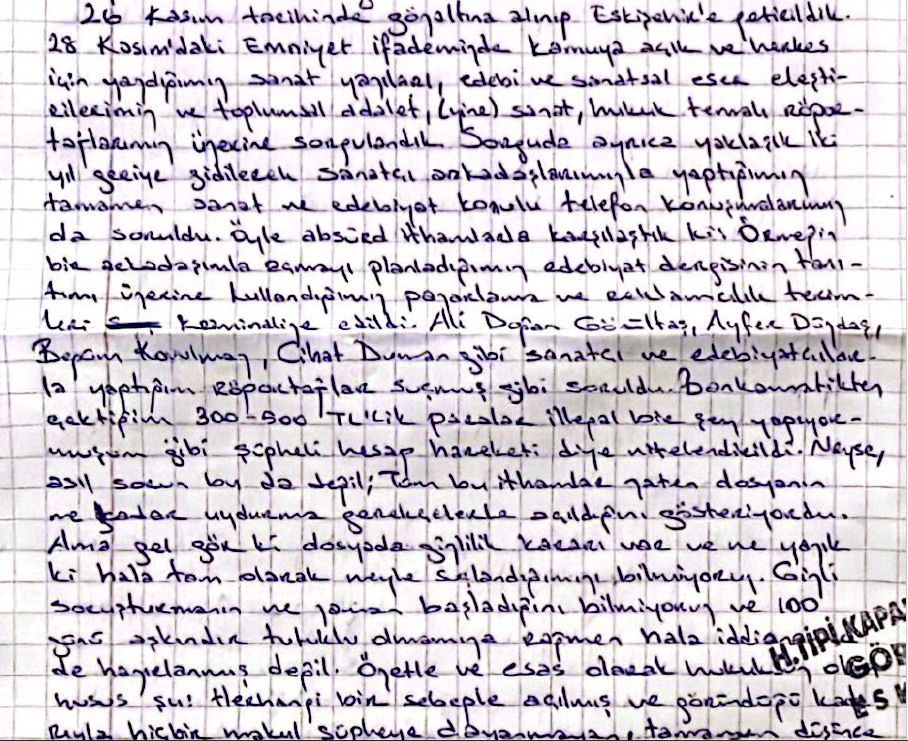 26 Kasım tarihinde gözaltına alınıp Eskişehir'e getirildik.
28 Kasım'daki Emniyet ifademizde kamuya açık ve herkes
için yazdığımız sanat yazıları, edebi ve sanatsal eser eleşti-
rilerimin ve toplumsal adalet, (yine) sanat, hukuk temalı röpor-
tajlarımın üzerine sorgulandık. Sorguda ayrıca yaklaşık iki
yıl geriye gidilerek sanatçı arkadaşlarımızla yaptığımız
tamamen sanat ve edebiyat konulu telefon konuşmalarımız
da soruldu. Öyle absürd ithamlarla karşılaştık ki! Örneğin
bir arkadaşımla çıkarmayı planladığımız edebiyat dergisinin tanı-
tımı üzerine kullandığımız pazarlama ve reklamcılık terim-
leri kriminalize edildi. Ali Doğan Gönültaş, Ayfer Düzdaş,
Begüm Korulmaz, Cihat Duman gibi sanatçı ve edebiyatçılar-
la yaptığım röportajlar suçmuş gibi soruldu. Bankamatikten
çektiğim 300-500 TL'lik paralar illegal bir şey yapıyor-
muşum gibi şüpheli hesap hareketi diye nitelendirildi. Neyse,
asıl sorun bu da değil; Tüm bu ithamlar zaten dosyanın
ne kadar uydurma gerekçelerle açıldığını gösteriyordu.
Ama gel gör ki dosyada gizlilik kararı var ve ne yazık
ki hala tam olarak neyle suçlandığımızı bilmiyoruz. Gizli
soruşturmanın ne zaman başladığını bilmiyoruz ve 100
günü aşkındır tutuklu olmamıza rağmen hala
de hazırlanmış değil. Özetle ve esas olarak
husus şu: Herhangi bir sebeple açılmış ve göründüğü
hiçbir makul şüpheye dayanmayan, tamamen düşünce
H.TİPİ KAPA